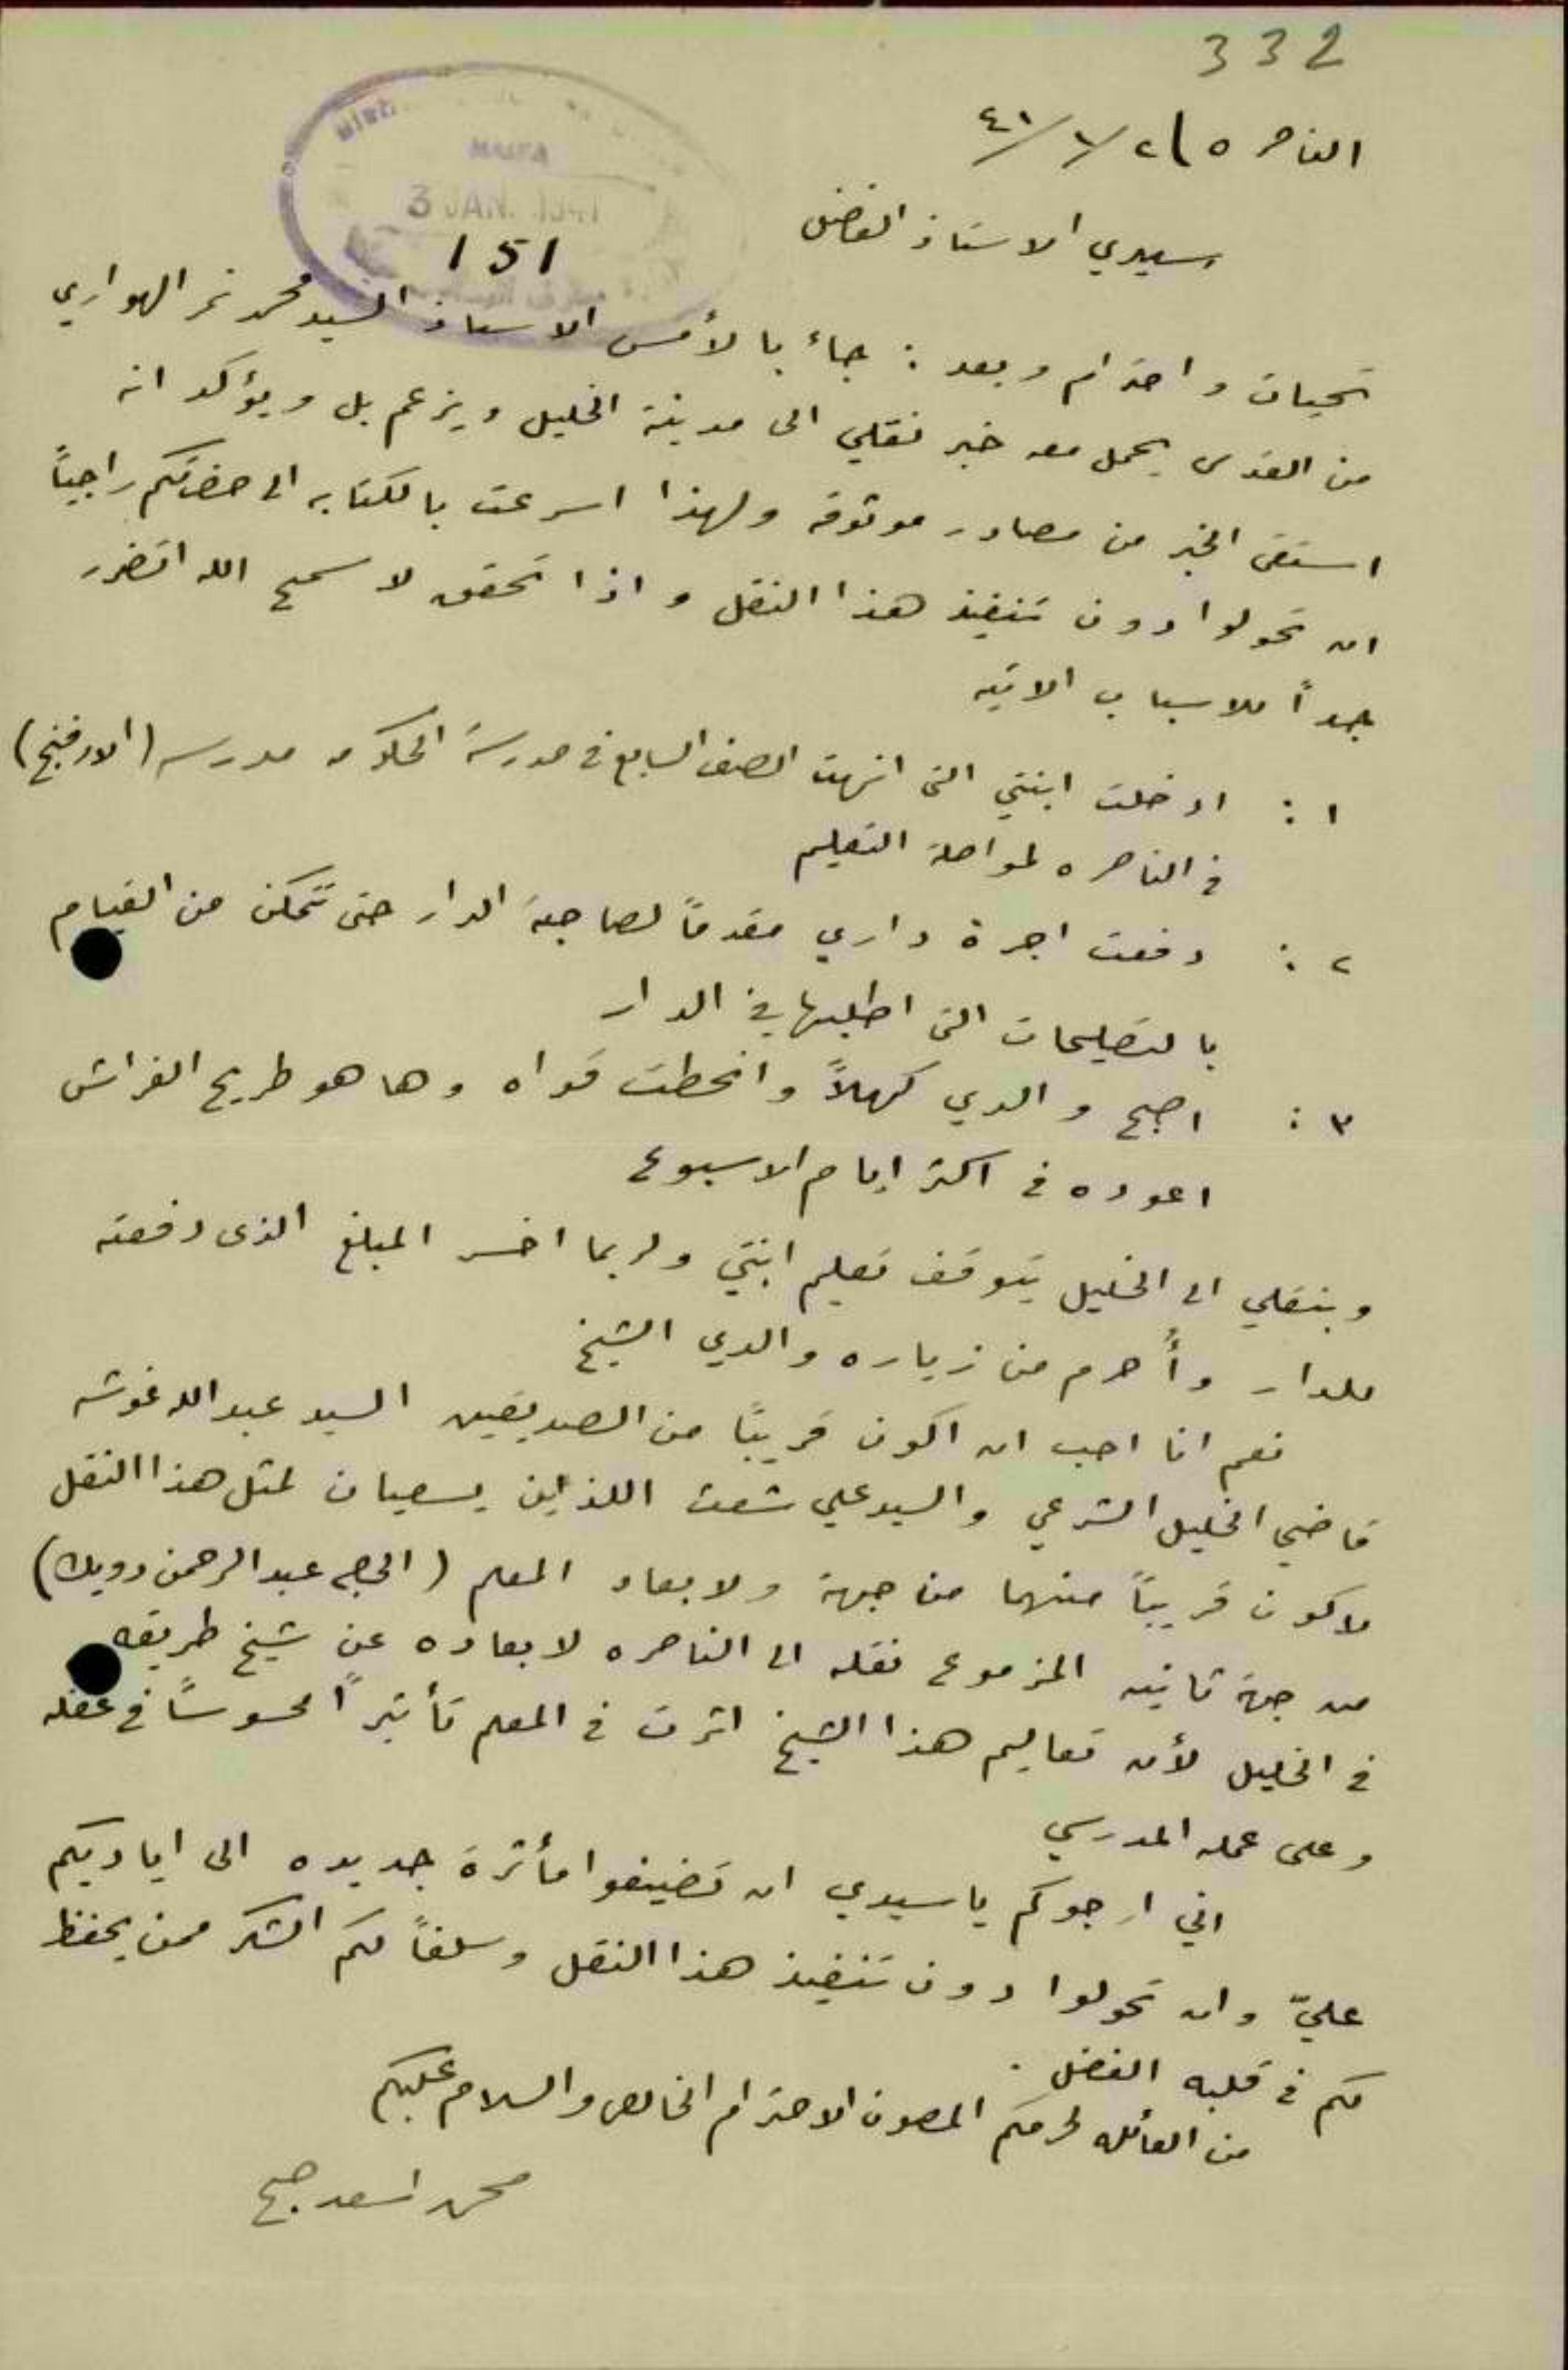 332
الناصره ٢/١/٤١
HAIFA
3 JAN. 1941
151
سيدي الاستاذ الفاضل
تحيات واحترام وبعد : جاء بالأمس الاستاذ السيد محمد نمر الهواري
من القدس يحمل معه خبر نقلي الى مدينة الخليل ويزعم بل ويؤكد انه
استقى الخبر من مصادر موثوقه ولهذا اسرعت بالكتابه الى حضرتكم راجياً
ان تحولوا دون تنفيذ هذا النقل واذا تحقق لا سمح الله اتضرر
جداً للاسباب الاتيه
١ : ادخلت ابنتي التى انهت الصف السابع في مدرسة الحكومه مدرسه (الاورفنج)
في الناصره لمواصلة التعليم
٢ : دفعت اجرة داري مقدماً لصاحبة الدار حتى تتمكن من القيام
بالتصليحات التى اطلبها في الدار
٣ : اصبح والدي كهلاً وانحطت قواه وها هو طريح الفراش
اعوده في اكثر ايام الاسبوع
وبنقلي الى الخليل يتوقف تعليم ابنتي ولربما اخسر المبلغ الذى دفعته
للدار وأحرم من زياره والدي الشيخ
نعم انا احب ان اكون قريباً من الصديقين السيد عبد الله غوشه
قاضي الخليل الشرعي والسيد علي شعث اللذين يسعيان لمثل هذا النقل
لاكون قريباً منهما من جهة ولابعاد المعلم (الحاج عبد الرحمن دويك)
من جهة ثانيه المزموع نقله الى الناصره لابعاده عن شيخ طريقه
في الخليل لأن تعاليم هذا الشيخ اثرت في المعلم تأثيراً محسوساً في عقله
وعلى عمله المدرسي
اني ارجوكم يا سيدي ان تضيفوا مأثرة جديده الى اياديكم
عليّ وان تحولوا دون تنفيذ هذا النقل وسلفاً لكم الشكر ممن يحفظ
لكم في قلبه الفضل .
من العائله لحرمكم المصون الاحترام الخالص والسلام عليكم
اسعد صبح